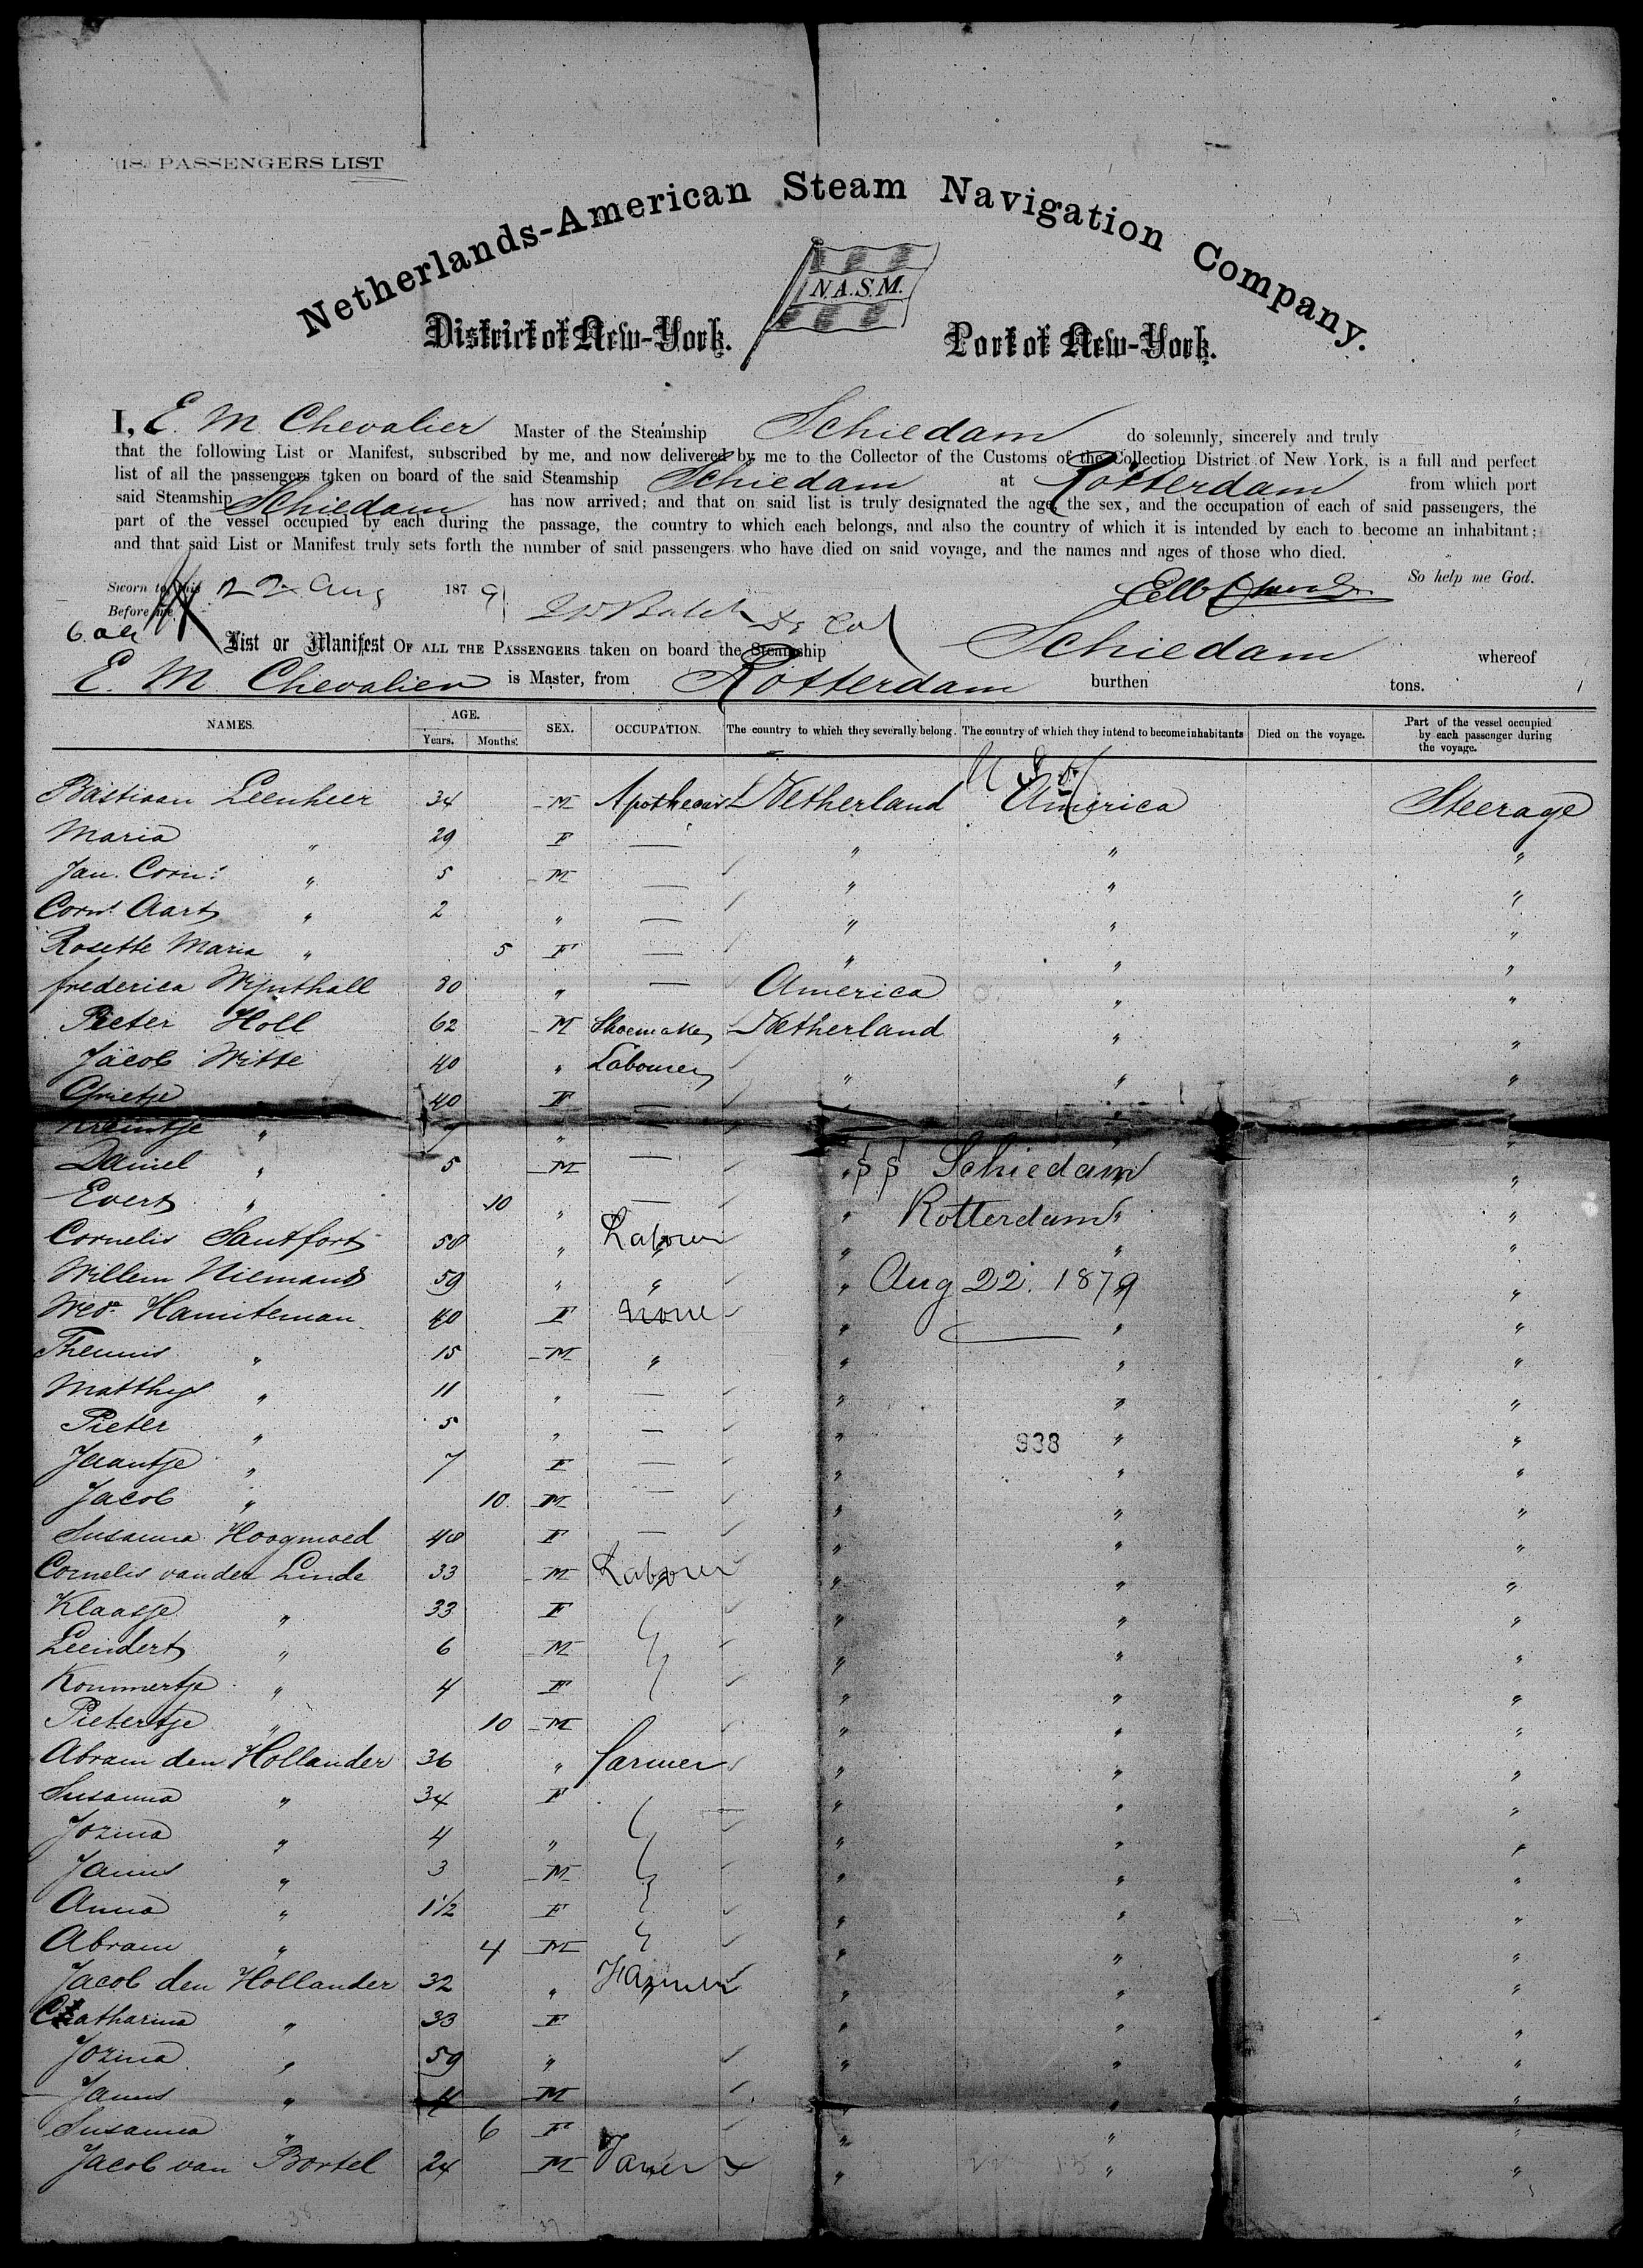 PASSENGERS LIST
Netherlands-American Steam Navigation Company.
N.A.S.M.
District of New-York. Port of New-York.
I, E. M. Chevalier Master of the Steamship Schiedam do solemnly, sincerely and truly
that the following List or Manifest, subscribed by me, and now delivered by me to the Collector of the Customs of the Collection District of New York, is a full and perfect
list of all the passengers taken on board of the said Steamship Schiedam at Rotterdam from which port
said Steamship Schiedam has now arrived; and that on said list is truly designated the age, the sex, and the occupation of each of said passengers, the
part of the vessel occupied by each during the passage, the country to which each belongs, and also the country of which it is intended by each to become an inhabitant;
and that said List or Manifest truly sets forth the number of said passengers who have died on said voyage, and the names and ages of those who died.
So help me God.
Sworn to this 22 Aug 1879
Before me
List or Manifest OF ALL THE PASSENGERS taken on board the Steamship Schiedam whereof
E. M. Chevalier is Master, from Rotterdam burthen tons.
NAMES. AGE. Years. Months. SEX. OCCUPATION. The country to which they severally belong. The country of which they intend to become inhabitants Died on the voyage. Part of the vessel occupied by each passenger during the voyage.
Bastiaan Leenheer 34 M Netherland U S of America Steerage
Maria " 29 F — " " "
Jan. Corn: " 5 M — " " "
Corns. Aart " 2 " — " " "
Rosette Maria " 5 F — " " "
frederica Wijnthall 30 " — America " "
Pieter Holl 62 M Shoemaker Netherland " "
Jacob Witte 40 " Labourer " " "
Grietje 40 F — " "
Kreintje " 7 " — "
Daniel " 5 M — " SS Schiedam " "
Evert " 10 " — " Rotterdam " "
Cornelis Santfort 50 " Labourer " " "
Willem Niemand 59 " " " Aug 22. 1879 " "
Wed. Hamiteman 40 F None " " "
Theunis " 15 M " " " "
Matthijs " 11 " — " " "
Pieter " 5 " — " 938 " "
Jaantje " 7 F — " " "
Jacob " 10 M — " " "
Susanna Hoogmoed 48 F — " " "
Cornelis van der Linde 33 M Labourer " " "
Klaasje " 33 F " " "
Leendert " 6 M " " "
Kommertje " 4 F " " "
Pietertje " 10 M " " "
Abram den Hollander 36 " farmer " " "
Susanna " 34 F " " "
Jozina " 4 " " " "
Janus " 3 M " " "
Anna " 1 1/2 F " " "
Abram " 4 M " " "
Jacob den Hollander 32 " Farmer " " "
Catharina " 33 F " " "
Jozina " 59 " " " "
Janus " 4 M " " "
Susanna " 6 F " " "
Jacob van Bortel 24 M " " "